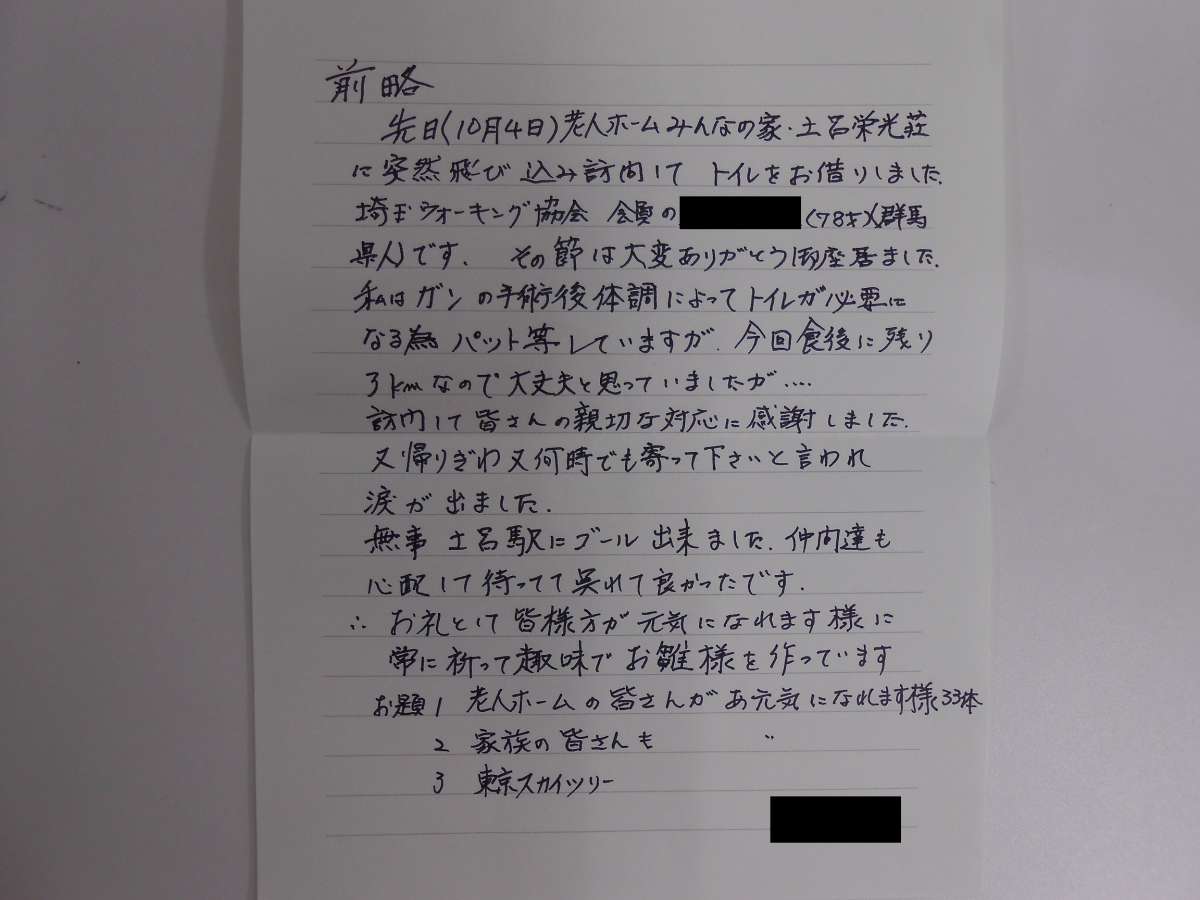 前略
先日(10月4日)老人ホームみんなの家・土呂栄光荘
に突然飛び込み訪問して トイレをお借りしました.
埼玉ウォーキング協会 会員の (78才)(群馬
県人)です. その節は大変ありがとう御座居ました.
私はガンの手術後体調によってトイレが必要に
なる為 パット等していますが. 今回食後に残り
3kmなので大丈夫と思っていましたが....
訪問して皆さんの親切な対応に感謝しました.
又帰りぎわ又何時でも寄って下さいと言われ
涙が出ました.
無事 土呂駅にゴール出来ました. 仲間達も
心配して待ってて呉れて良かったです.
∴ お礼として皆様方が元気になれます様に
常に祈って趣味でお雛様を作っています
お題1 老人ホームの皆さんがお元気になれます様33体
2 家族の皆さんも 〃
3 東京スカイツリー